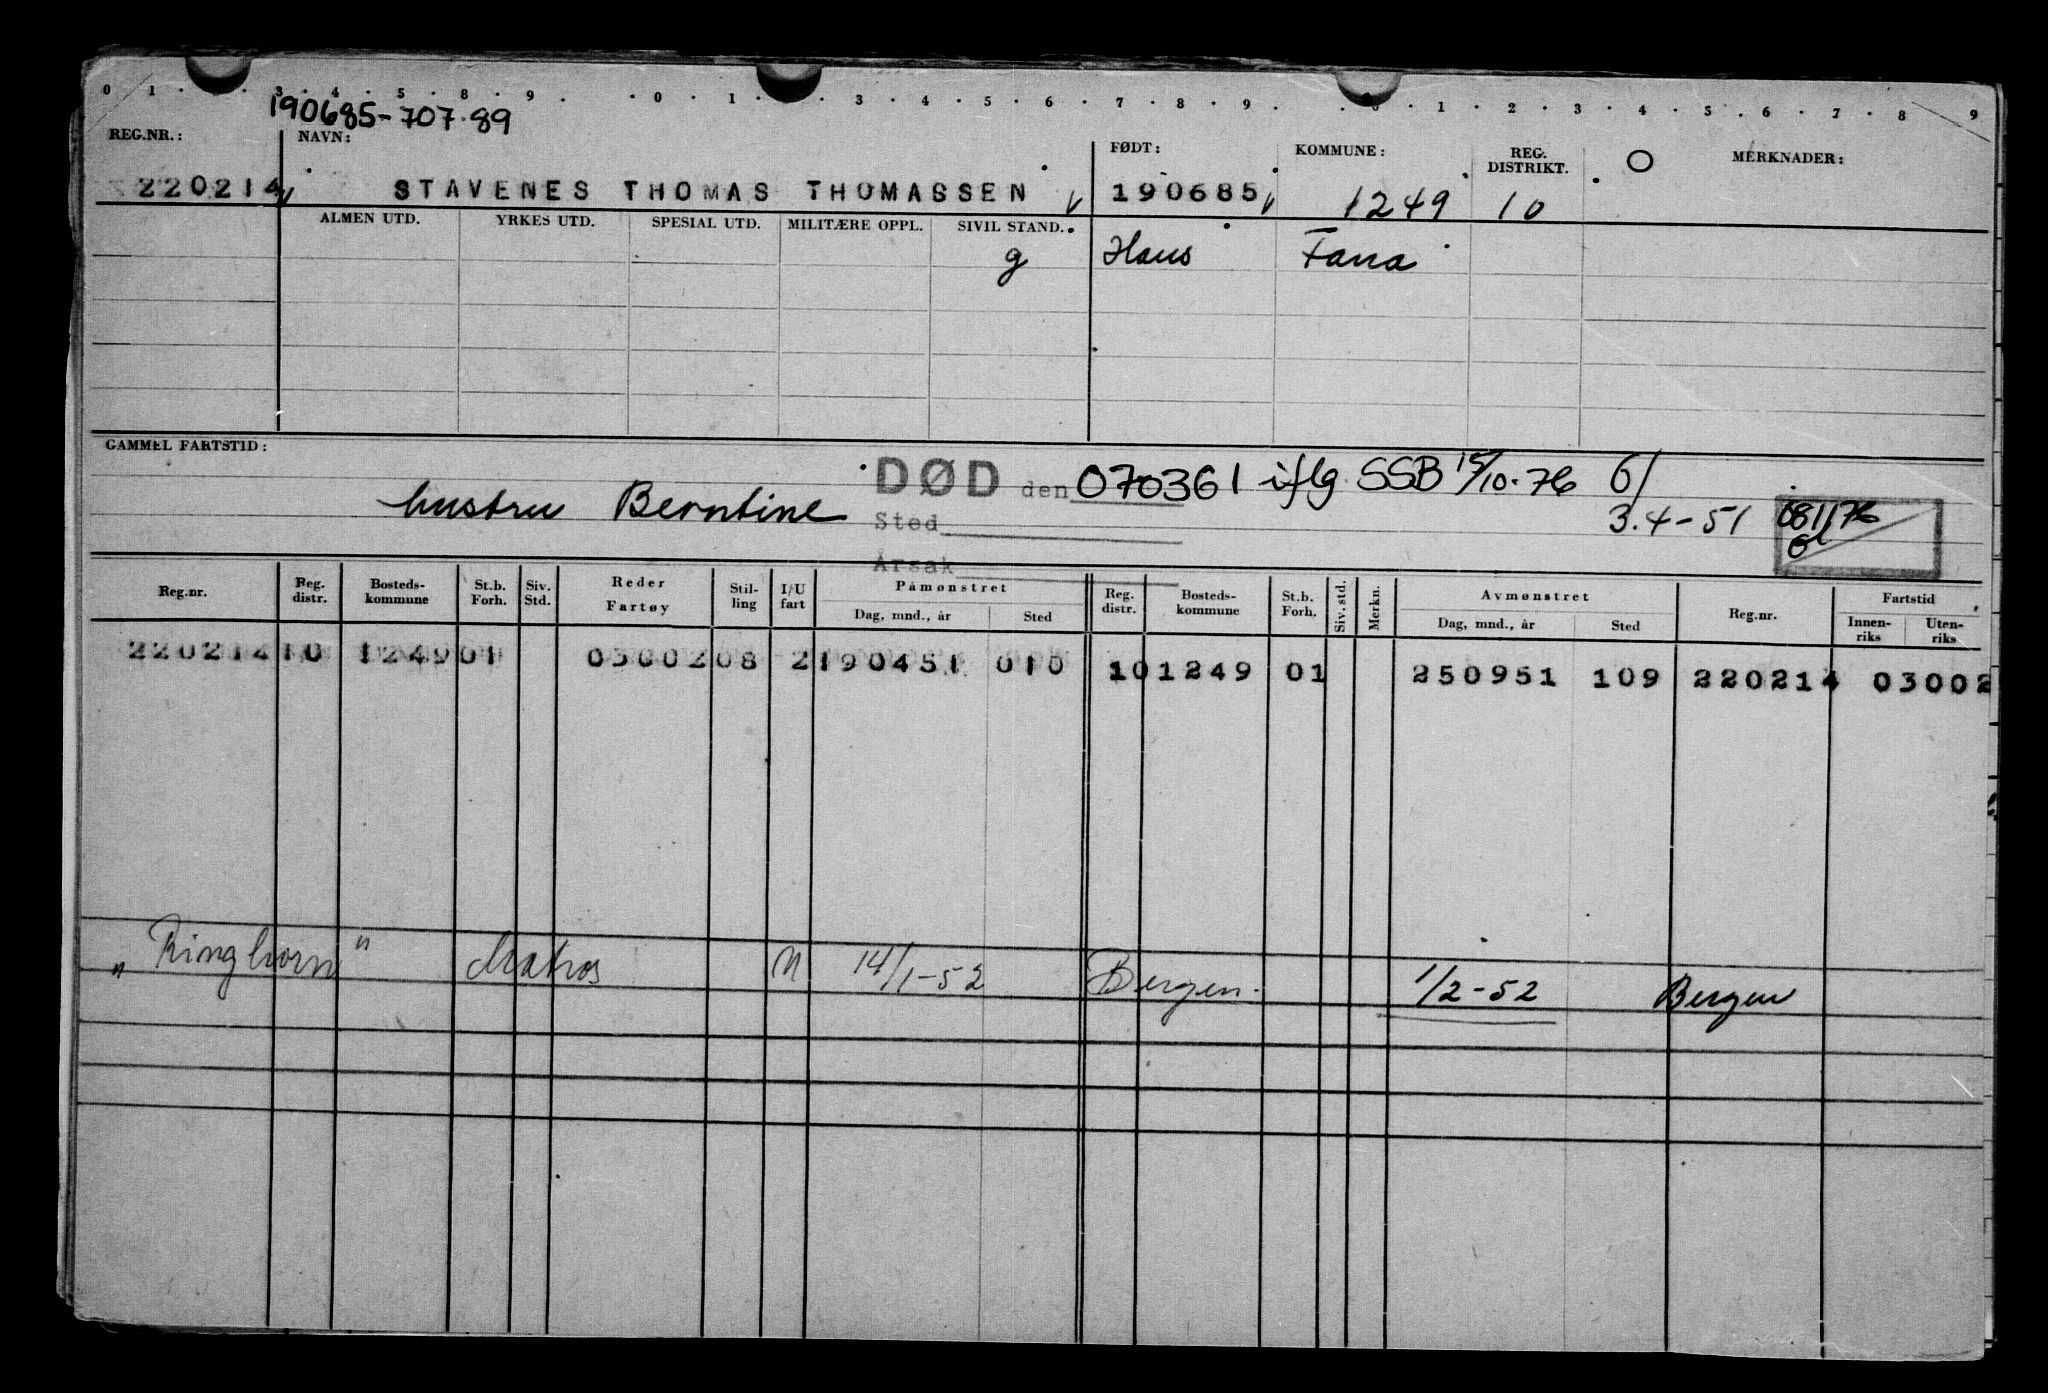 0 1 . . . 3 . 4 . 5 . 8 . 9 . . 0 . 1 . . 3 . 4 . 5 . 6 . 7 . 8 . 9 . . 0 . 1 . 2 . 3 . 4 . 5 . 6 . 7 . 8 . 9
190685-707.89
REG.NR.: NAVN: FØDT: KOMMUNE: REG. DISTRIKT. O MERKNADER:
220214 STAVENES THOMAS THOMASSEN 190685 1249 10
ALMEN UTD. YRKES UTD. SPESIAL UTD. MILITÆRE OPPL. SIVIL STAND.
g Haus Fana
GAMMEL FARTSTID:
DØD den 070361 iflg. SSB 15/10-76 6/
hustru Berntine Sted 3.4-51 081176
Årsak
Reg.nr. Reg. distr. Bosteds-kommune St.b. Forh. Siv. Std. Reder Fartøy Stil-ling I/U fart Påmønstret Dag, mnd., år Sted Reg. distr. Bosteds-kommune St.b. Forh. Siv. std. Merkn. Avmønstret Dag, mnd., år Sted Reg.nr. Fartstid Innen-riks Uten-riks
220214 10 1249 01 03002 08 2 190451 010 10 1249 01 250951 109 220214 03002
"Ringhorn" Matros N 14/1-52 Bergen. 1/2-52 Bergen